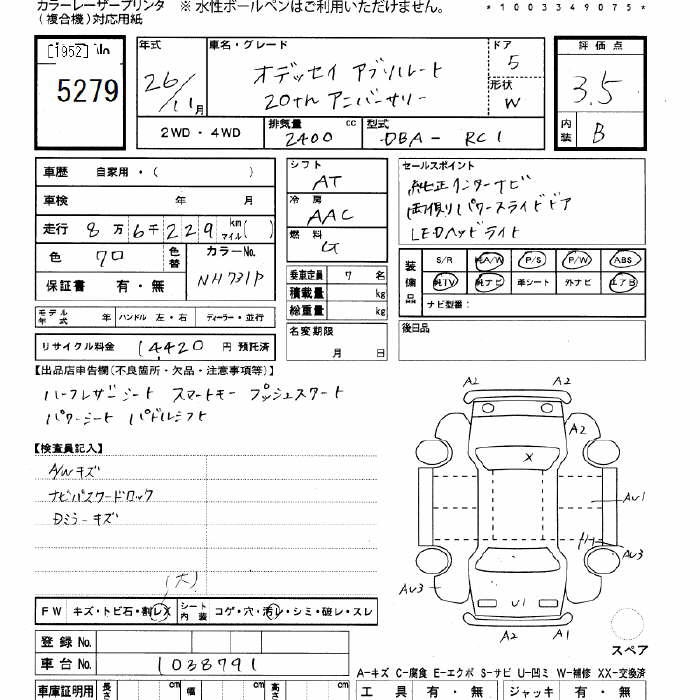 カラーレーザープリンタ ※ 水性ボールペンはご利用いただけません。 *1003349075*
(複合機)対応用紙
[1952]
5279
年式 車名・グレード ドア 評価点
26/11月 オデッセイ アブソルート 5 3.5
20th アニバーサリー 形状 W
2WD・4WD 排気量 2400 cc 型式 DBA- RC1 内装 B
車歴 自家用・( )
車検 年 月
走行 8万6千229km マイル( )
色 クロ 色替 カラーNo. NH731P
保証書 有・無
モデル年式 年 ハンドル 左・右 ディーラー・並行
リサイクル料金 14420円 預託済
シフト AT
冷房 AAC
燃料 G
乗車定員 7 名
積載量 kg
総重量 kg
名変期限
月 日
セールスポイント
純正インターナビ
両側パワースライドドア
LEDヘッドライト
装備品 S/R 純A/W P/S P/W ABS
純TV 純ナビ 革シート 外ナビ エアB
ナビ型番:
後日品
【出品店申告欄(不良箇所・欠品・注意事項等)】
ハーフレザーシート スマートキー プッシュスタート
パワーシート パドルシフト
【検査員記入】
A/Wキズ
ナビパスワードロック
Dミラーキズ
(大)
FW キズ・トビ石・割レX シート内装 コゲ・穴・汚レ・シミ・破レ・スレ
登録 No.
車台 No. 1038791
車庫証明用 長さ cm 幅 cm 高さ cm
A2 A2
A2
X
AU1
AU3
AU3
U1
A2 A1
スペア
A-キズ C-腐食 E-エクボ S-サビ U-凹ミ W-補修 XX-交換済
工具 有・無 ジャッキ 有・無